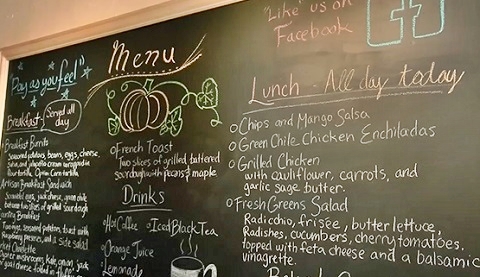 "Pay as you feel"
Breakfast - Served all day
Breakfast Burrito
Seasoned potatoes, beans, eggs, cheese,
salsa, and jalapeño cream wrapped in
flour tortilla. Open Corn tortilla
Artisan Breakfast Sandwich
Scrambled eggs, jack cheese, green chile
between two slices of grilled sourdough
Breakfast
Two eggs, seasoned potatoes, toast with
Raspberry preserves, and a side salad
goat cheese
Menu
French Toast
Two slices of grilled battered
sourdough with pecans & maple.
Drinks
Hot Coffee
Iced Black Tea
Orange Juice
Lemonade
"Like" us on
Facebook
f
Lunch - All day today
Chips and Mango Salsa
Green Chile Chicken Enchiladas
Grilled Chicken
with cauliflower, carrots, and
garlic sage butter.
Fresh Greens Salad
Radicchio, frisée, butter lettuce,
Radishes, cucumbers, cherry tomatoes.
topped with feta cheese and a balsamic
vinagrette.